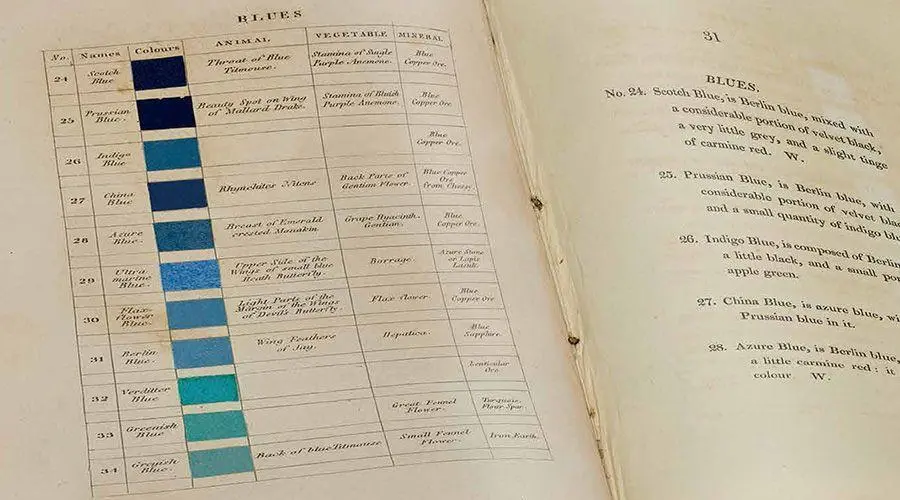 BLUES
No. Names Colours ANIMAL VEGETABLE MINERAL
24 Scotch Blue Throat of Blue Titmouse. Stamina of Single Purple Anemone. Blue Copper Ore.
25 Prussian Blue. Beauty Spot on Wing of Mallard Drake. Stamina of Bluish Purple Anemone. Blue Copper Ore.
26 Indigo Blue Blue Copper Ore.
27 China Blue Rhynchites Nitens Back Parts of Gentian Flower. Blue Copper Ore from Chessy.
28 Azure Blue. Breast of Emerald crested Manakin. Grape Hyacinth. Gentian. Blue Copper Ore.
29 Ultra marine Blue. Upper Side of the Wings of small blue Heath Butterfly. Borrage. Azure Stone or Lapis Lazuli.
30 Flax-flower Blue. Light Parts of the Margin of the Wings of Devil's Butterfly. Flax flower. Blue Copper Ore
31 Berlin Blue. Wing Feathers of Jay. Hepatica. Blue Sapphire.
32 Verditter Blue Lenticular Ore.
33 Greenish Blue. Great Fennel Flower. Turquois. Flour Spar.
34 Greyish Blue. Back of blue Titmouse Small Fennel Flower. Iron Earth.
31
BLUES.
No. 24. Scotch Blue, is Berlin blue, mixed with
a considerable portion of velvet black,
a very little grey, and a slight tinge
of carmine red. W.
25. Prussian Blue, is Berlin blue, with
considerable portion of velvet bla
and a small quantity of indigo bl
26. Indigo Blue, is composed of Berlin
a little black, and a small por
apple green.
27. China Blue, is azure blue, wi
Prussian blue in it.
28. Azure Blue, is Berlin blue,
a little carmine red: it
colour W.